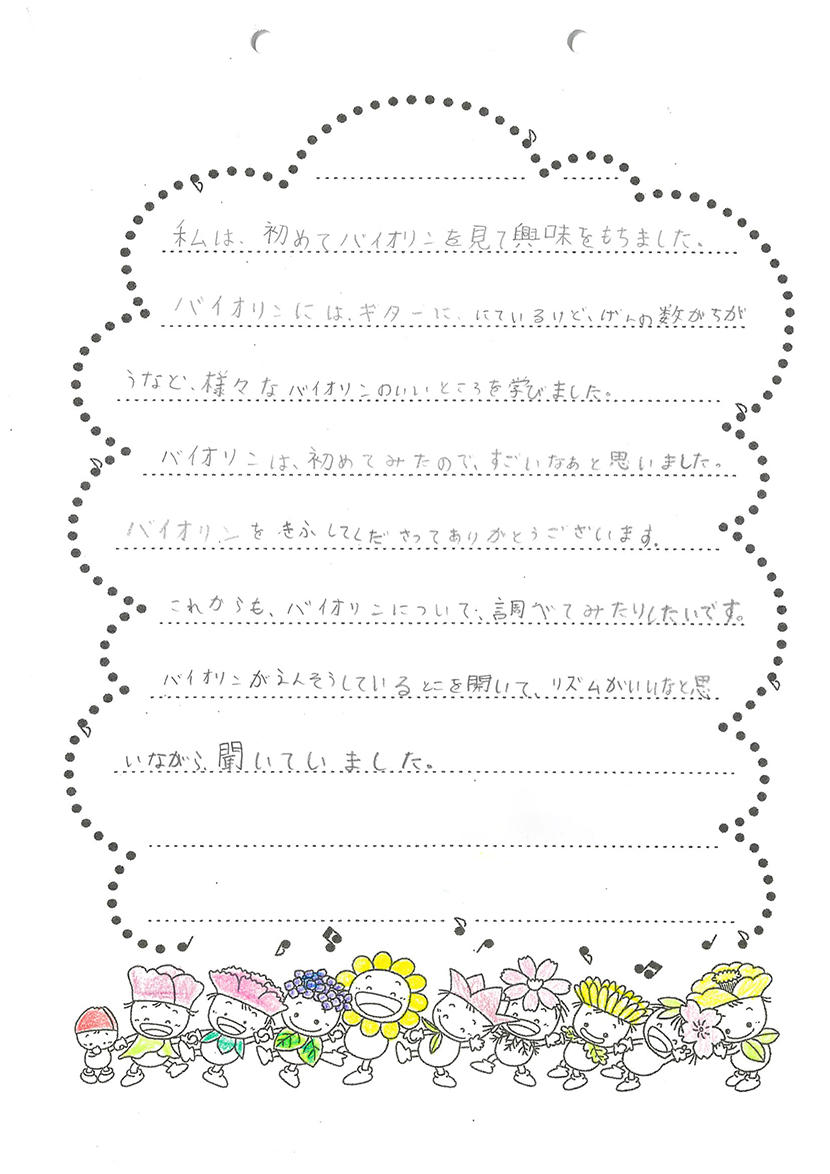 私は、初めてバイオリンを見て興味をもちました。
バイオリンには、ギターに、にているけど、げんの数がちが
うなど、様々なバイオリンのいいところを学びました。
バイオリンは、初めてみたので、すごいなぁと思いました。
バイオリンをきふしてくださってありがとうございます。
これからも、バイオリンについて、調べてみたりしたいです。
バイオリンがえんそうしているとこを聞いて、リズムがいいなと思
いながら、聞いていました。